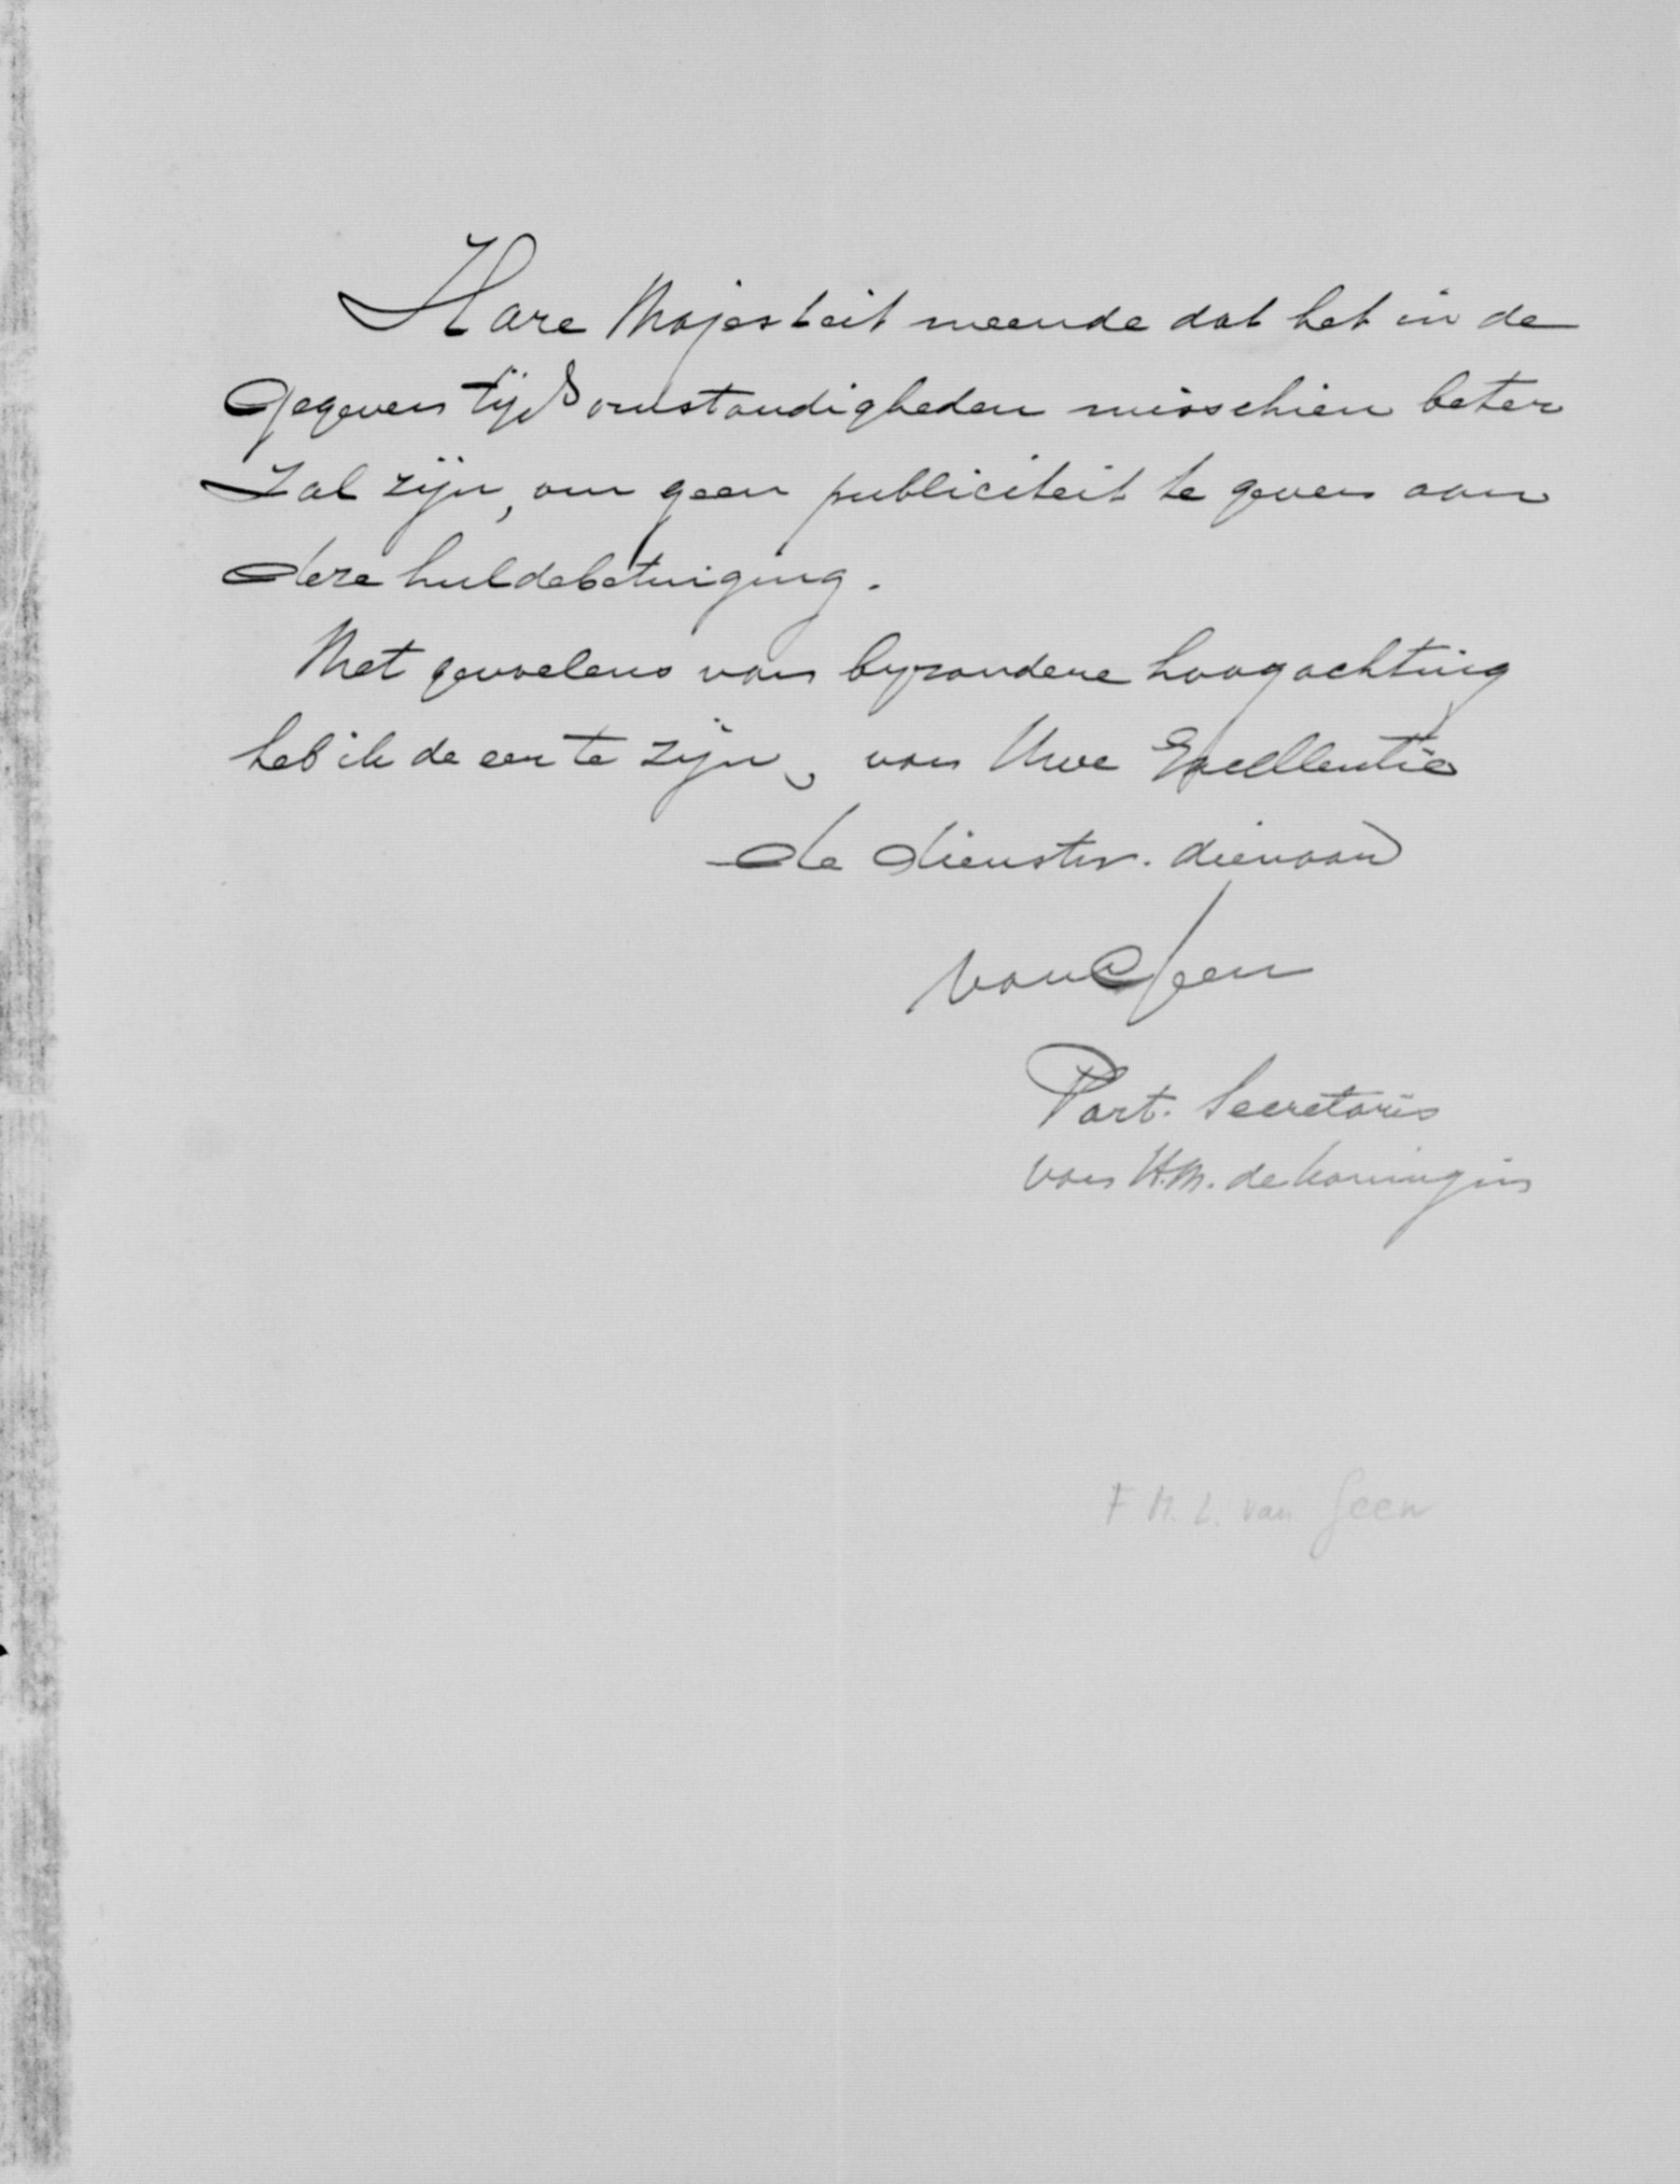 Hare Majesteit meende dat het in de
gegeven tijdsomstandigheden misschien beter
zal zijn, om geen publiciteit te geven aan
deze huldebetuiging.
Met gevoelens van byzondere hoogachting
heb ik de eer te zijn, van Uwe Excellentie
de dienstw. dienaar
van Geen
Part. Secretaris
van H.M. de Koningin
F M. L. van Geen